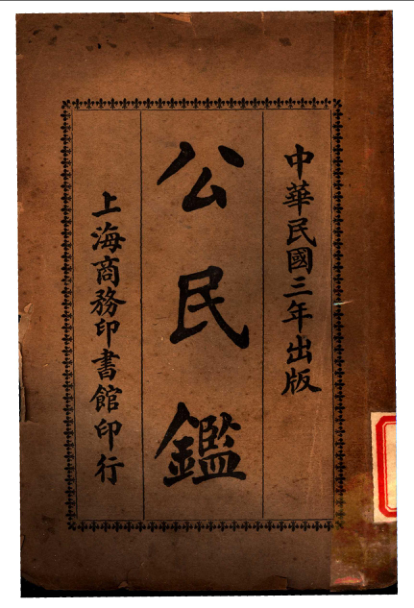 中華民國三年出版
公民鑑
上海商務印書館印行